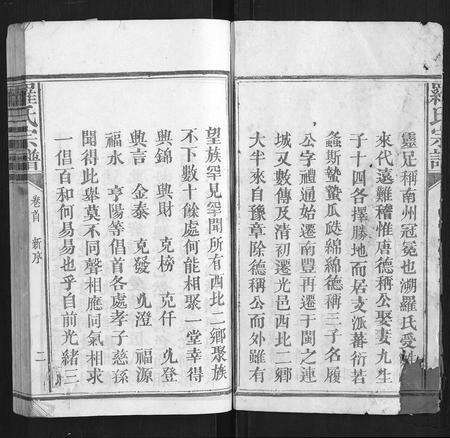 羅氏宗譜
靈足稱南州冠冕也溯羅氏受姓
來代遠難稽惟唐德稱公娶妻九生
子十四各擇勝地而居支派蕃衍若
螽斯蟄蟄瓜瓞綿綿德稱三子名履
公字禮通始遷南豐再遷于閩之連
城又數傳及清初遷光邑西北二鄉
大半來自豫章除德稱公而外雖有
望族罕見罕聞所有西北二鄉聚族
不下數十餘處何能相聚一堂幸得
興錦 興財 克榜 克仟 光登
興吉 金泰 克發 光澄 福源
福永 亨陽等倡首各處孝子慈孫
聞得此舉莫不同聲相應同氣相求
一倡百和何易易也乎自前光緒三
羅氏宗譜 卷首 新序 二